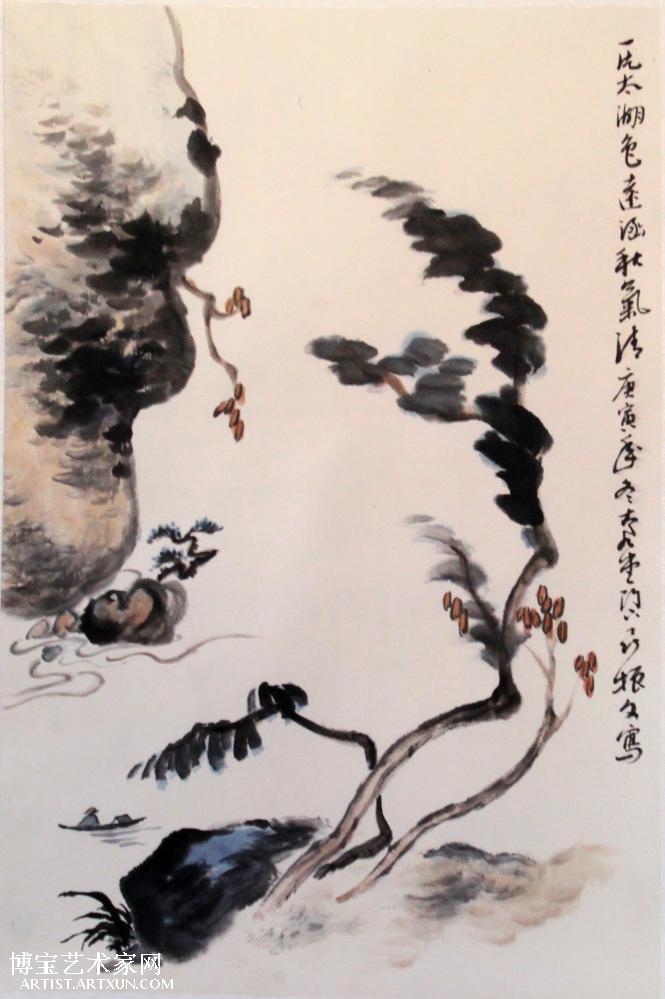 一片太湖色遠涵秋氣清庚寅年冬
振文寫
博宝艺术家网
ARTIST.ARTXUN.COM